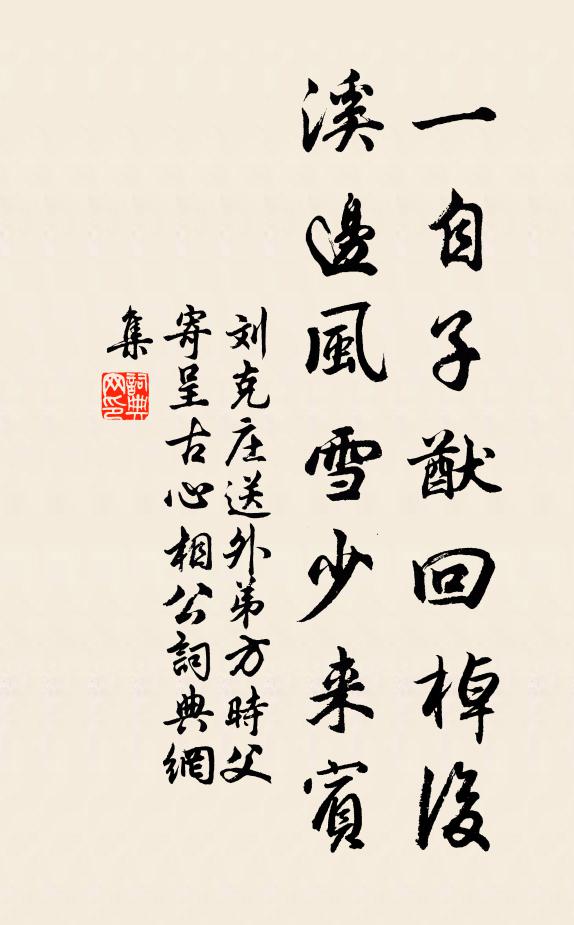 一自子猷回棹後
溪邊風雪少来賓
刘克庄送外弟方時父
寄呈古心相公詞典網
集
詞典网印